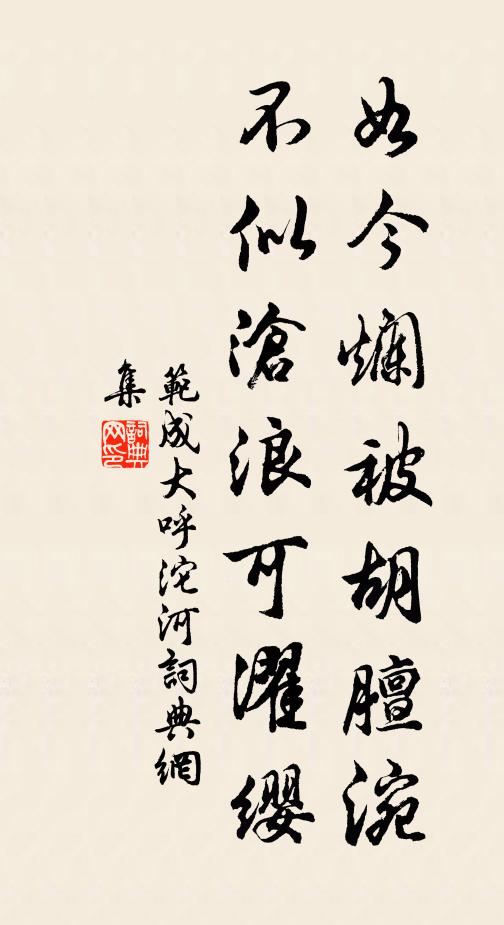 如今爛被胡膻涴
不似滄浪可濯纓
範成大呼沱河詞典網
集
詞典網印